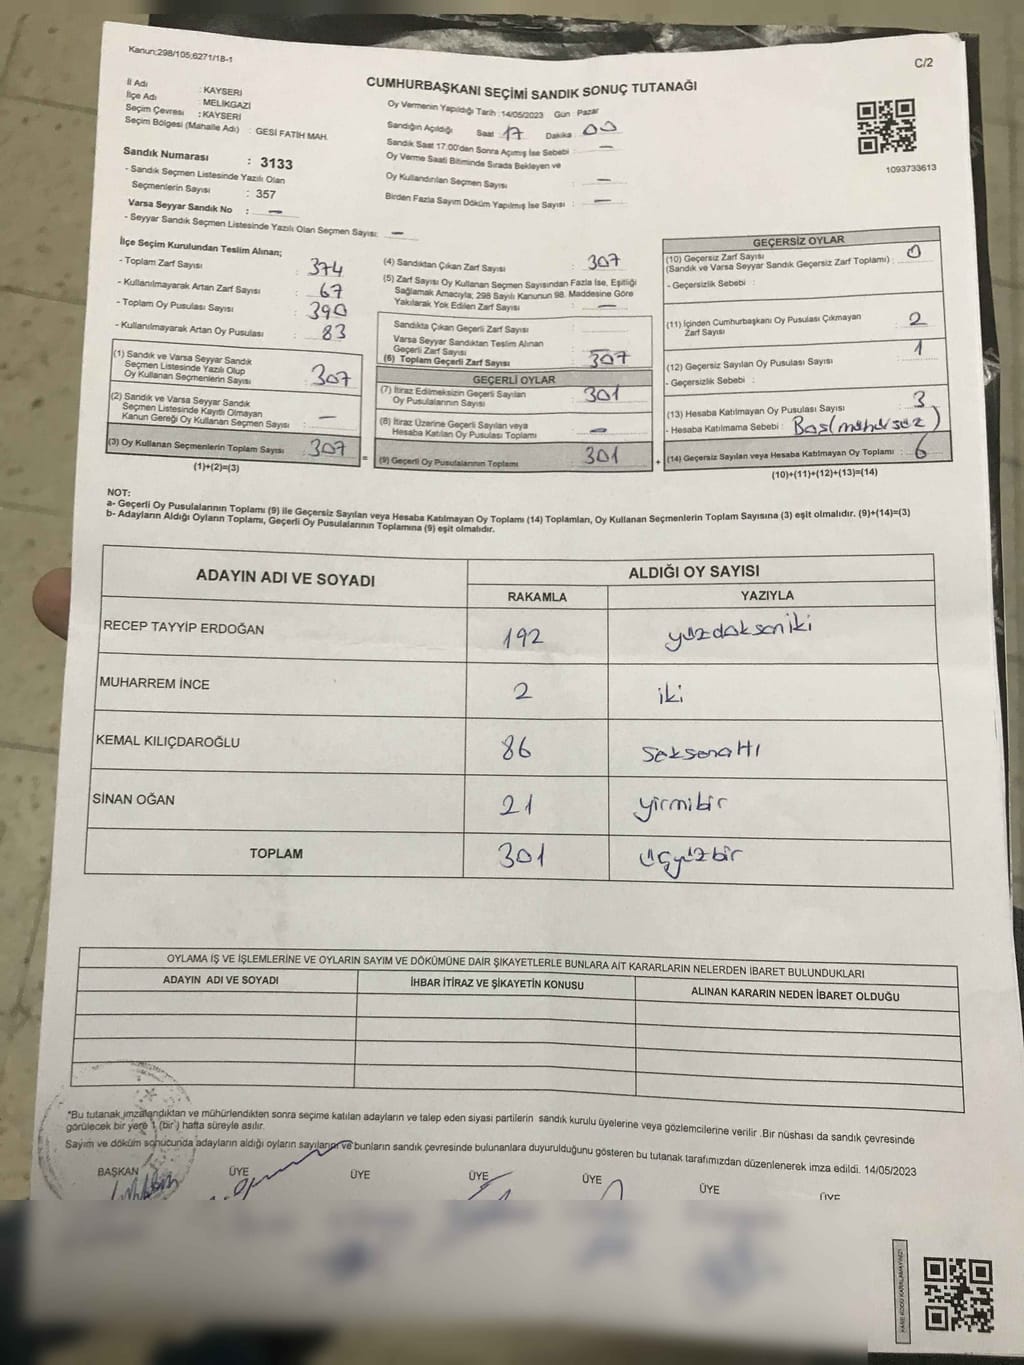 Kanun;298/105;6271/18-1
C/2
CUMHURBAŞKANI SEÇİMİ SANDIK SONUÇ TUTANAĞI
İl Adı : KAYSERİ
İlçe Adı : MELİKGAZİ
Seçim Çevresi : KAYSERİ
Seçim Bölgesi (Mahalle Adı) : GESİ FATİH MAH.
Sandık Numarası : 3133
- Sandık Seçmen Listesinde Yazılı Olan
Seçmenlerin Sayısı : 357
Varsa Seyyar Sandık No : —
- Seyyar Sandık Seçmen Listesinde Yazılı Olan Seçmen Sayısı: —
Oy Vermenin Yapıldığı Tarih :14/05/2023 Gün : Pazar
Sandığın Açıldığı Saat : 17 Dakika : 00
Sandık Saat 17:00'den Sonra Açımış İse Sebebi : —
Oy Verme Saati Bitiminde Sırada Bekleyen ve
Oy Kullandırılan Seçmen Sayısı : —
Birden Fazla Sayım Döküm Yapılmış İse Sayısı : —
1093733613
İlçe Seçim Kurulundan Teslim Alınan;
- Toplam Zarf Sayısı : 374
- Kullanılmayarak Artan Zarf Sayısı : 67
- Toplam Oy Pusulası Sayısı : 390
- Kullanılmayarak Artan Oy Pusulası : 83
(1) Sandık ve Varsa Seyyar Sandık
Seçmen Listesinde Yazılı Olup
Oy Kullanan Seçmenlerin Sayısı : 307
(2) Sandık ve Varsa Seyyar Sandık
Seçmen Listesinde Kayıtlı Olmayan
Kanun Gereği Oy Kullanan Seçmen Sayısı : —
(3) Oy Kullanan Seçmenlerin Toplam Sayısı : 307
(1)+(2)=(3)
=
(4) Sandıktan Çıkan Zarf Sayısı : 307
(5) Zarf Sayısı Oy Kullanan Seçmen Sayısından Fazla İse, Eşitliği
Sağlamak Amacıyla; 298 Sayılı Kanunun 98. Maddesine Göre
Yakılarak Yok Edilen Zarf Sayısı : —
Sandıkta Çıkan Geçerli Zarf Sayısı :
Varsa Seyyar Sandıktan Teslim Alınan
Geçerli Zarf Sayısı : —
(6) Toplam Geçerli Zarf Sayısı : 307
GEÇERLİ OYLAR
(7) İtiraz Edilmeksizin Geçerli Sayılan
Oy Pusulalarının Sayısı : 301
(8) İtiraz Üzerine Geçerli Sayılan veya
Hesaba Katılan Oy Pusulası Toplamı : —
(9) Geçerli Oy Pusulalarının Toplamı : 301
+
GEÇERSİZ OYLAR
(10) Geçersiz Zarf Sayısı
(Sandık ve Varsa Seyyar Sandık Geçersiz Zarf Toplamı) : 0
- Geçersizlik Sebebi :
(11) İçinden Cumhurbaşkanı Oy Pusulası Çıkmayan
Zarf Sayısı : 2
(12) Geçersiz Sayılan Oy Pusulası Sayısı : 1
- Geçersizlik Sebebi :
(13) Hesaba Katılmayan Oy Pusulası Sayısı : 3
- Hesaba Katılmama Sebebi : Boş(mühürsüz)
(14) Geçersiz Sayılan veya Hesaba Katılmayan Oy Toplamı : 6
(10)+(11)+(12)+(13)=(14)
NOT:
a- Geçerli Oy Pusulalarının Toplamı (9) ile Geçersiz Sayılan veya Hesaba Katılmayan Oy Toplamı (14) Toplamları, Oy Kullanan Seçmenlerin Toplam Sayısına (3) eşit olmalıdır. (9)+(14)=(3)
b- Adayların Aldığı Oyların Toplamı, Geçerli Oy Pusulalarının Toplamına (9) eşit olmalıdır.
ADAYIN ADI VE SOYADI
ALDIĞI OY SAYISI
RAKAMLA YAZIYLA
RECEP TAYYİP ERDOĞAN 192 yüzdoksaniki
MUHARREM İNCE 2 iki
KEMAL KILIÇDAROĞLU 86 seksenaltı
SİNAN OĞAN 21 yirmibir
TOPLAM 301 üçyüzbir
OYLAMA İŞ VE İŞLEMLERİNE VE OYLARIN SAYIM VE DÖKÜMÜNE DAİR ŞİKAYETLERLE BUNLARA AİT KARARLARIN NELERDEN İBARET BULUNDUKLARI
ADAYIN ADI VE SOYADI İHBAR İTİRAZ VE ŞİKAYETİN KONUSU ALINAN KARARIN NEDEN İBARET OLDUĞU
*Bu tutanak imzalandıktan ve mühürlendikten sonra seçime katılan adayların ve talep eden siyasi partilerin sandık kurulu üyelerine veya gözlemcilerine verilir .Bir nüshası da sandık çevresinde
görülecek bir yere 1 (bir ) hafta süreyle asılır.
Sayım ve döküm sonucunda adayların aldığı oyların sayılarını ve bunların sandık çevresinde bulunanlara duyurulduğunu gösteren bu tutanak tarafımızdan düzenlenerek imza edildi. 14/05/2023
BAŞKAN ÜYE ÜYE ÜYE ÜYE ÜYE ÜYE